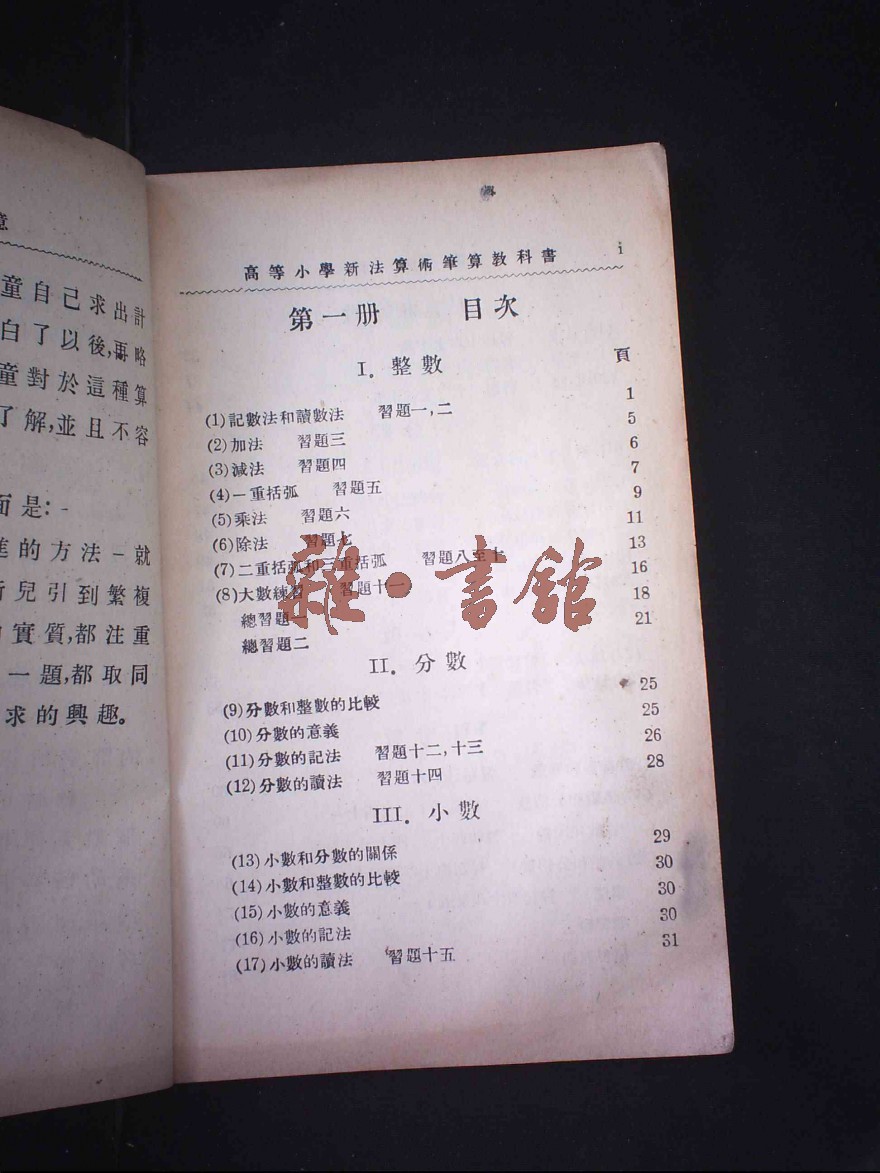 意
童自己求出計
白了以後,再略
童對於這種算
了解,並且不容
面是:-
進的方法-就
兒引到繁複
實質,都注重
一題,都取同
求的興趣。
高等小學新法算術筆算教科書 i
第一册 目次
I. 整數 頁
(1)記數法和讀數法 習題一,二 1
(2)加法 習題三 5
(3)減法 習題四 6
(4)一重括弧 習題五 7
(5)乘法 習題六 9
(6)除法 習題七 11
(7)二重括弧和三重括弧 習題八至十 13
(8)大數練習 習題十一 16
總習題一 18
總習題二 21
II. 分數
(9)分數和整數的比較 25
(10)分數的意義 25
(11)分數的記法 習題十二,十三 26
(12)分數的讀法 習題十四 28
III. 小數
(13)小數和分數的關係 29
(14)小數和整數的比較 30
(15)小數的意義 30
(16)小數的記法 30
(17)小數的讀法 習題十五 31
雜·書館